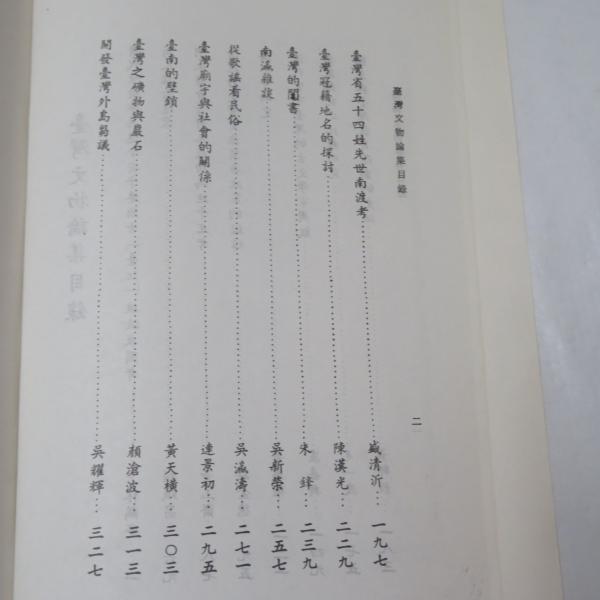 臺灣文物論集目錄
二
臺灣省五十四姓先世南渡考……盛清沂…一九七
臺灣冠籍地名的探討……陳漢光…二二九
臺灣的闈書……朱鋒…二三九
南瀛雜談……吳新榮…二五七
從歌謠看民俗……吳瀛濤…二七一
臺灣廟宇與社會的關係……連景初…二九五
臺南的壁鎖……黃天橫…三〇三
臺灣之礦物與巖石……顏滄波…三一三
開發臺灣外島芻議……吳耀輝…三二七